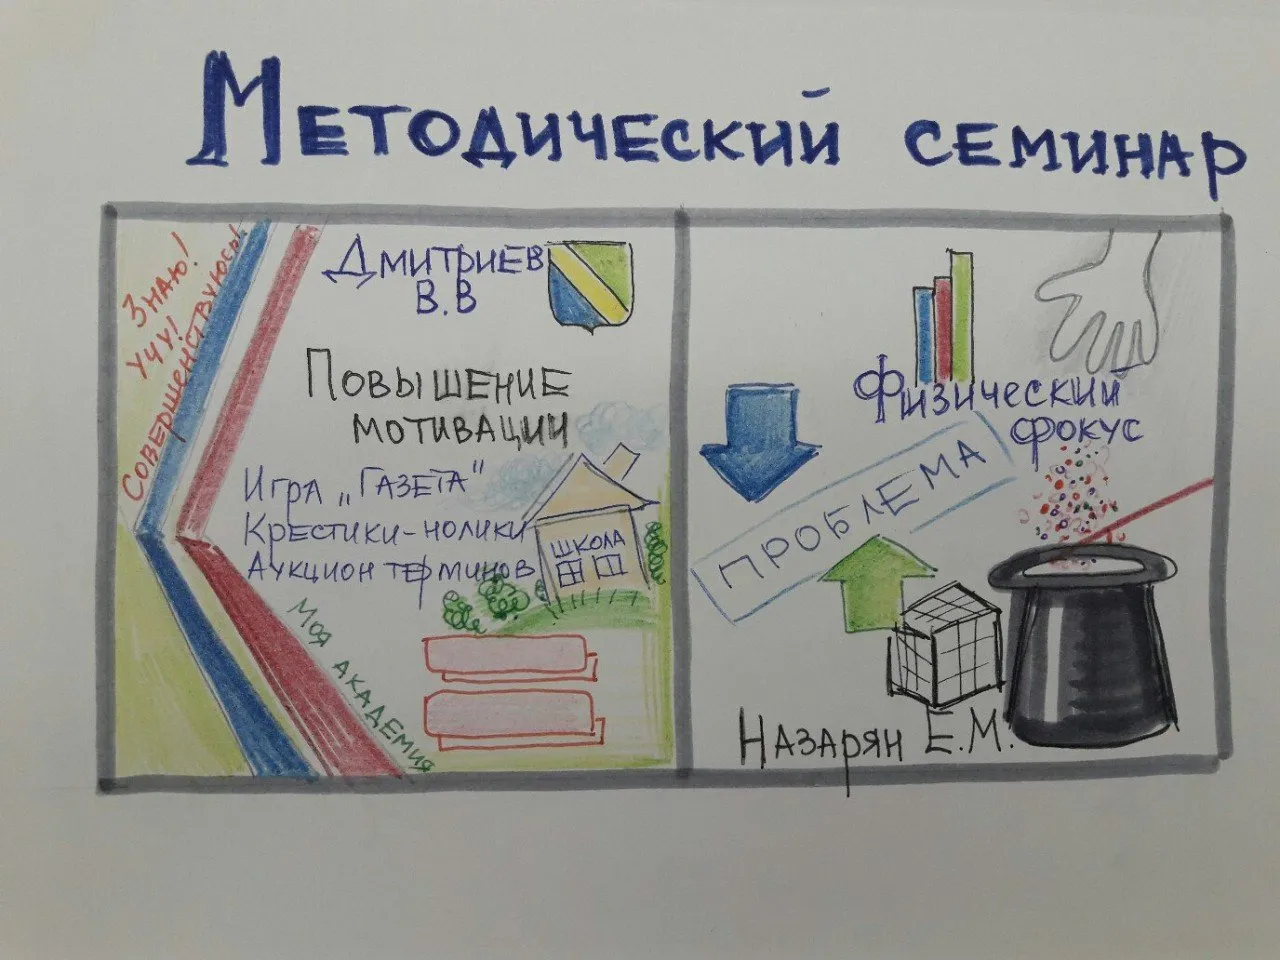 Методический семинар
Знаю!
Учу!
Совершенствуюсь!
Дмитриев
В.В
Повышение
мотивации
Игра „Газета"
Крестики-нолики
Аукцион терминов
школа
Моя академия
Физический
фокус
ПРОБЛЕМА
Назарян Е.М.